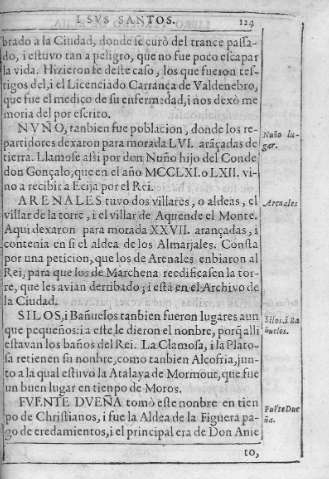 I SVS SANTOS. 124
brado a la Ciudad, donde se curò del trance passa-
do, i estuvo tan a peligro, que no fue poco escapar
la vida. Hizieron fe deste caso, los que fueron tes-
tigos del, i el Licenciado Carrança de Valdenebro,
que fue el medico de su enfermedad, i nos dexò me
moria del por escrito.
NVÑO, tanbien fue poblacion, donde los re-
partidores dexaron para morada LVI. arãçadas de
tierra. Llamose assi por don Nuño hijo del Conde
don Gonçalo, que en el año MCCLXI. o LXII. vi-
no a recibir a Ecija por el Rei.
Nuño lu-
gar.
ARENALES tuvo dos villares, o aldeas, el
villar de la torre, i el villar de Aquende el Monte.
Aqui dexaron para morada XXVII. arançadas, i
contenia en si el aldea de los Almarjales. Consta
por una peticion, que los de Arenales enbiaron al
Rei, para que los de Marchena reedificasen la tor-
re, que les avian derribado; i està en el Archivo de
la Ciudad.
Arenales
SILOS, i Bañuelos tanbien fueron lugares aun
que pequeños: i a este le dieron el nonbre, porq̃ alli
estavan los baños del Rei. La Clamosa, i la Plato-
sa retienen su nonbre, como tanbien Alcofria, jun-
to a la qual estuvo la Atalaya de Mormour, que fue
un buen lugar en tienpo de Moros.
Silos, i Ba
ñuelos.
FVENTE DVEÑA tomò este nonbre en tien
po de Christianos, i fue la Aldea de la Figuera pa-
go de eredamientos, i el principal era de Don Ane
Fuẽte Due
ña.
to,